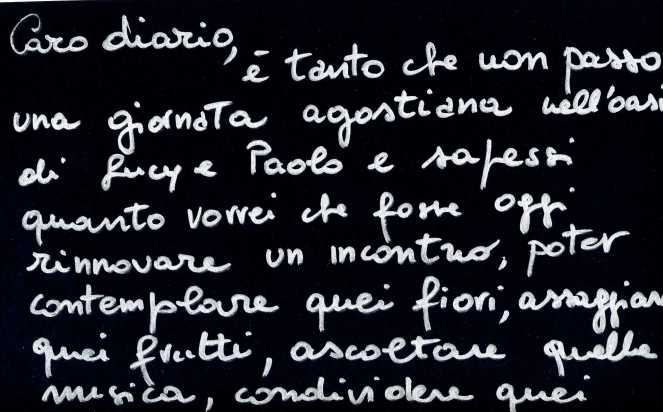 Caro diario,
è tanto che non passo
una giornata agostiana nell'oasi
di Lucy e Paolo e sapessi
quanto vorrei che fosse oggi
rinnovare un incontro, poter
contemplare quei fiori, assaggiar
quei frutti, ascoltare quella
musica, condividere quei